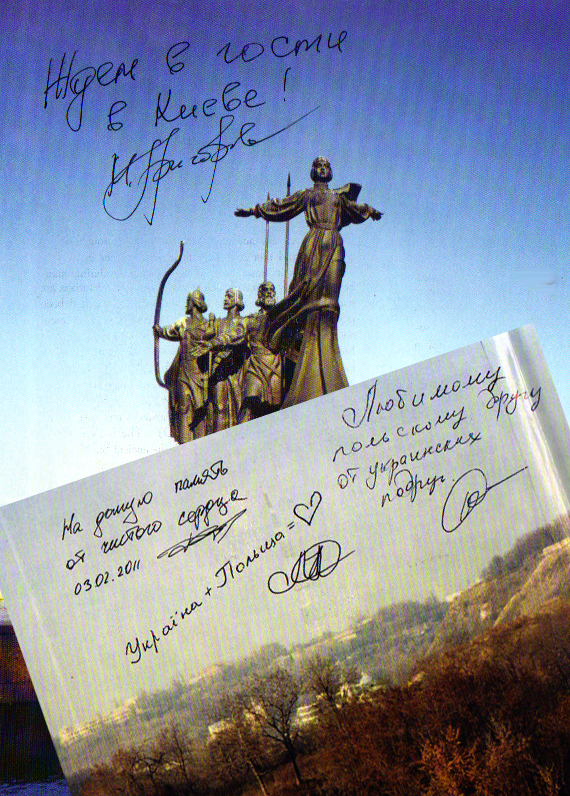 Ждем в гости
в Киеве!
На долгую память
от чистого сердца
03.02.2011
Україна + Польща = ♡
Любимому
польскому другу
от украинских
подруг.